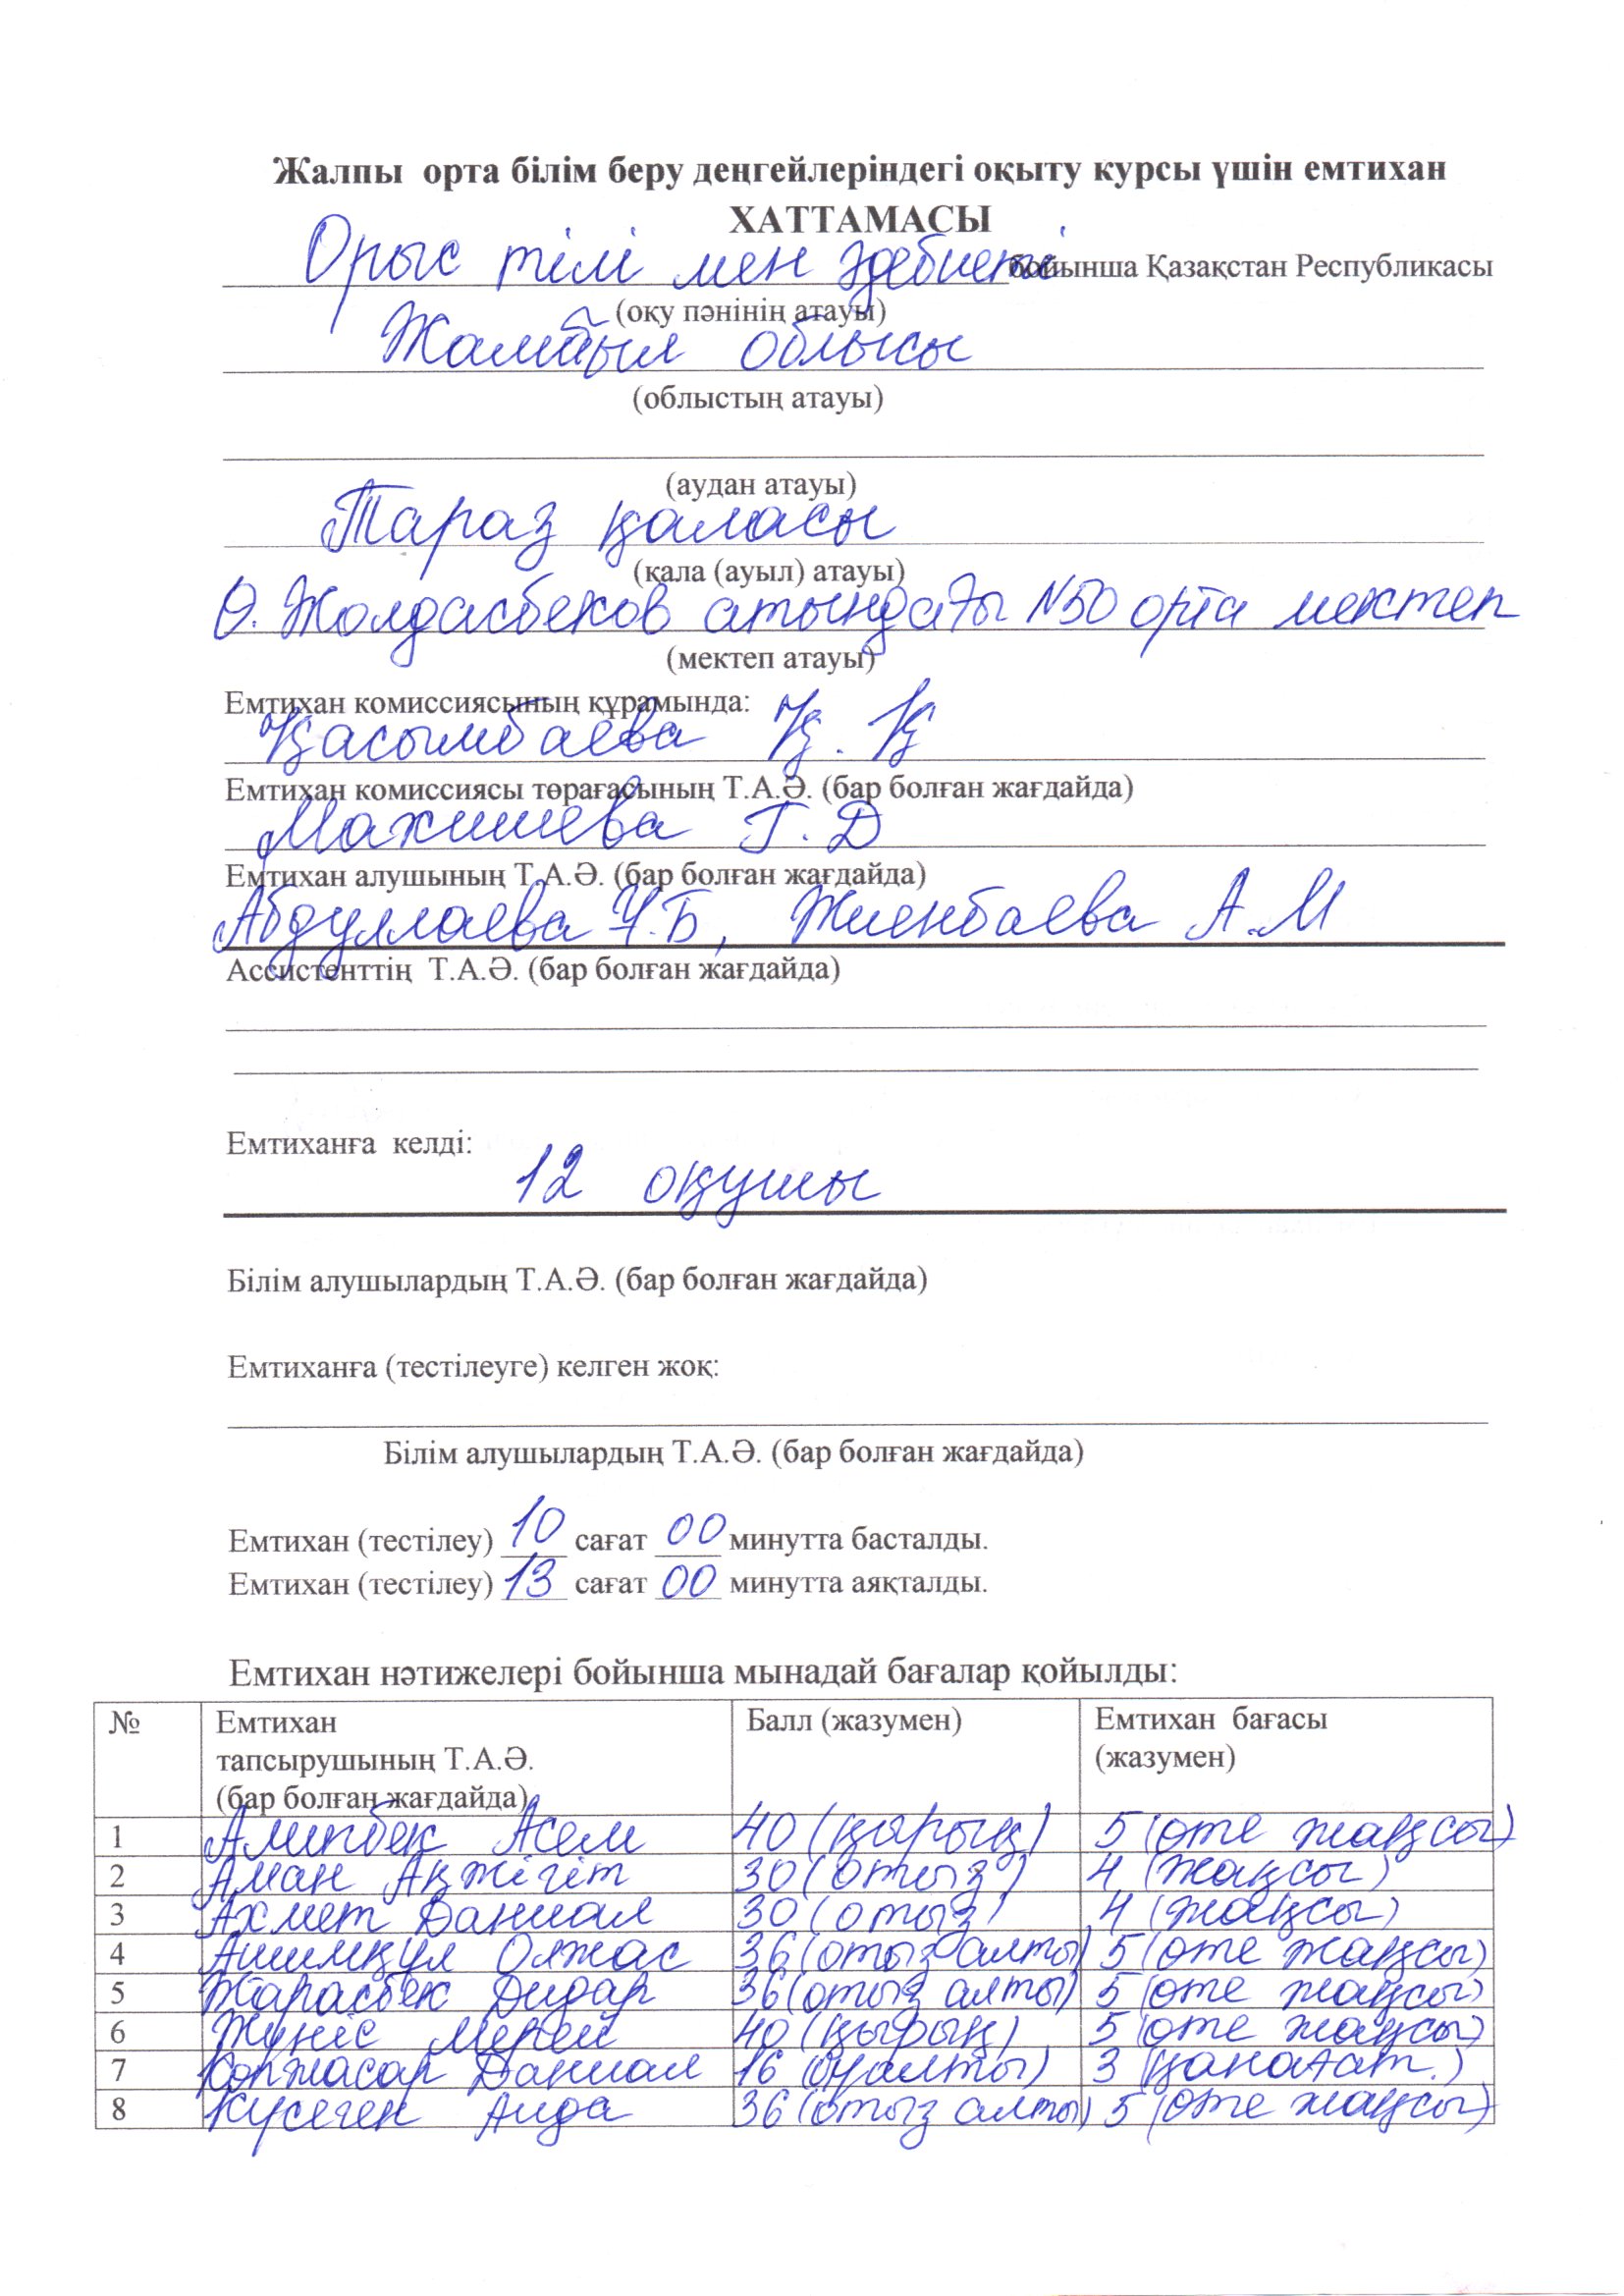 Жалпы орта білім беру деңгейлеріндегі оқыту курсы үшін емтихан
ХАТТАМАСЫ
Орыс тілі мен әдебиеті бойынша Қазақстан Республикасы
(оқу пәнінің атауы)
Жамбыл облысы
(облыстың атауы)
(аудан атауы)
Тараз қаласы
(қала (ауыл) атауы)
Ө. Жолдасбеков атындағы №50 орта мектеп
(мектеп атауы)
Емтихан комиссиясының құрамында:
Қасымбаева Қ. Қ
Емтихан комиссиясы төрағасының Т.А.Ә. (бар болған жағдайда)
Махишева Г. Д
Емтихан алушының Т.А.Ә. (бар болған жағдайда)
Абдуллаева Ч.Б, Жиенбаева А.М
Ассистенттің Т.А.Ә. (бар болған жағдайда)
Емтиханға келді:
12 оқушы
Білім алушылардың Т.А.Ә. (бар болған жағдайда)
Емтиханға (тестілеуге) келген жоқ:
Білім алушылардың Т.А.Ә. (бар болған жағдайда)
Емтихан (тестілеу) 10 сағат 00 минутта басталды.
Емтихан (тестілеу) 13 сағат 00 минутта аяқталды.
Емтихан нәтижелері бойынша мынадай бағалар қойылды:
№ Емтихан тапсырушының Т.А.Ә. (бар болған жағдайда) Балл (жазумен) Емтихан бағасы (жазумен)
1 Алипбек Асем 40 (қырық) 5 (өте жақсы)
2 Аман Ақжігіт 30 (отыз) 4 (жақсы)
3 Ахмет Даниал 30 (отыз) 4 (жақсы)
4 Ашимқұл Олжас 36 (отыз алты) 5 (өте жақсы)
5 Жарасбек Дидар 36 (отыз алты) 5 (өте жақсы)
6 Жүніс Мерей 40 (қырық) 5 (өте жақсы)
7 Көпжасар Даниал 16 (оналты) 3 (қанағат.)
8 Күсеген Аида 36 (отыз алты) 5 (өте жақсы)